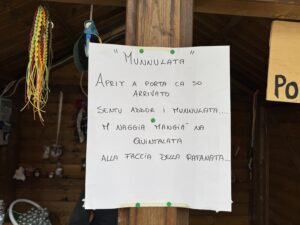 "MUNNULATA"
APRIT A PORTA CA SO
ARRIVATO
SENTU ADDOR I MUNNULATA...
M NAGGIA MANGIÀ NA
QUINTALATA
ALLA FACCIA DELLA RAFANATA...
PO